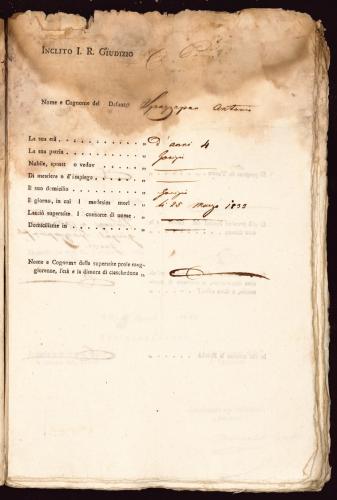 INCLITO I. R. GIUDIZIO
Nome e Cognome del Defunto Spazzapan Antonio
La sua età . . . . . . . . „ d'anni 4
La sua patria . . . . . . . „ Gorizia
Nubile, sposat o vedov . . . . „
Di mestiere o d'impiego . . . . „
Il suo domicilio . . . . . . „ Gorizia
Il giorno, in cui l medesim morì . . „ li 25 Marzo 1833
Lasciò superstite l consorte di nome . . „
Domiciliante in . . . . . . „
Nome e Cognome della superstite prole mag-
giorenne, sesk e la dimora di ciascheduno „